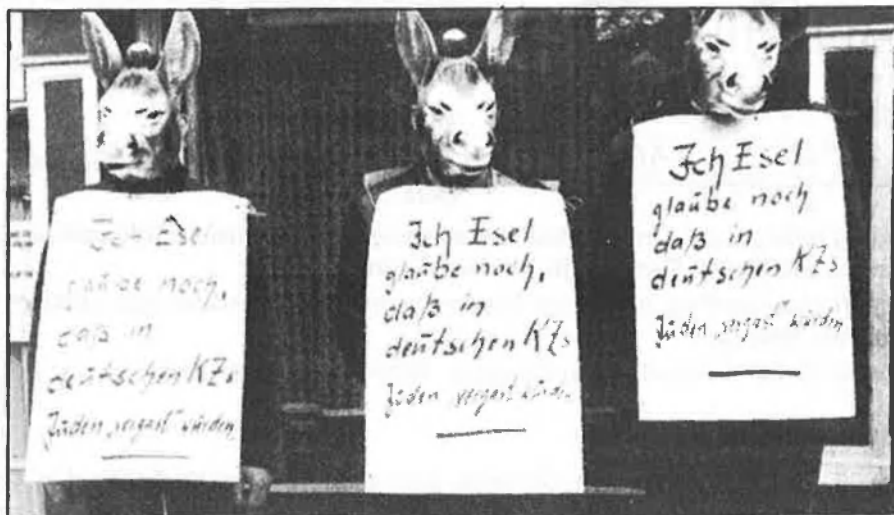 Ich Esel
glaube noch,
daß in
deutschen KZs
Juden „vergast" wurden
Ich Esel
glaube noch,
daß in
deutschen KZs
Juden „vergast" wurden
Ich Esel
glaube noch
daß in
deutschen KZs
Juden „vergast" wurden